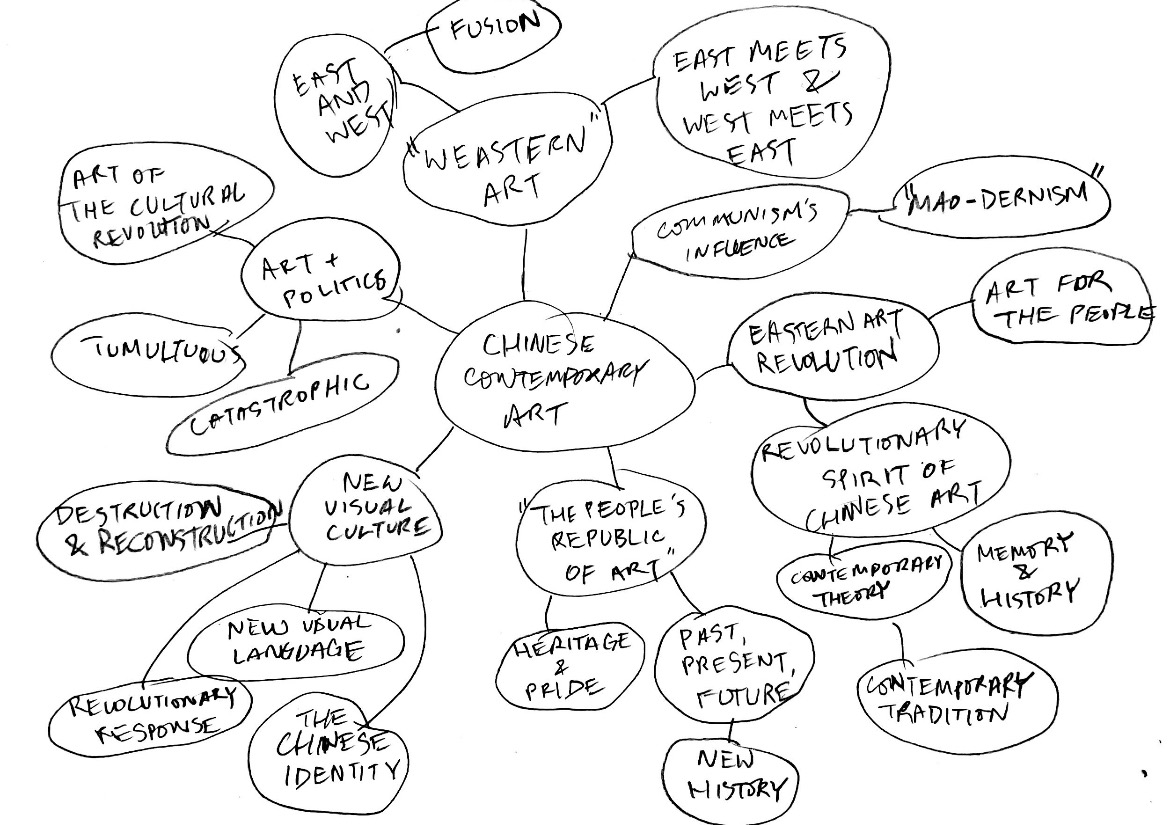 FUSION
EAST
AND
WEST
EAST MEETS
WEST &
WEST MEETS
EAST
"WEASTERN"
ART
ART OF
THE CULTURAL
REVOLUTION
COMMUNISM'S
INFLUENCE
"MAO-DERNISM"
ART +
POLITICS
ART FOR
THE PEOPLE
EASTERN ART
REVOLUTION
TUMULTUOUS
CHINESE
CONTEMPORARY
ART
CATASTROPHIC
REVOLUTIONARY
SPIRIT OF
CHINESE ART
NEW
VISUAL
CULTURE
DESTRUCTION
& RECONSTRUCTION
"THE PEOPLE'S
REPUBLIC
OF ART"
CONTEMPORARY
THEORY
MEMORY
&
HISTORY
NEW VISUAL
LANGUAGE
HERITAGE
&
PRIDE
PAST,
PRESENT,
FUTURE
CONTEMPORARY
TRADITION
REVOLUTIONARY
RESPONSE
THE
CHINESE
IDENTITY
NEW
HISTORY